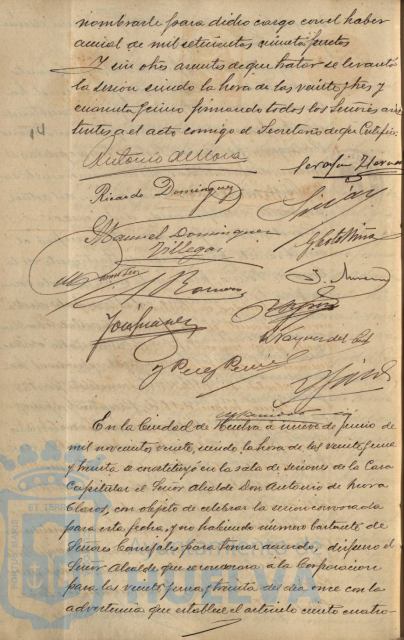 nombrarle para dicho cargo con el haber
anual de mil setecientas veinte pesetas
Y sin otros asuntos de que tratar se levantó
la sesion siendo la hora de las veinte y tres y
cuarenta y cinco firmando todos los Señores asis
tentes al acto conmigo el Secretario de que Certifico.
14
Antonio de Mora
Serafin
Ricardo Dominguez
Manuel Dominguez
Villegas
J. Romero
José Suarez
Vazquez del
J Perez
En la Ciudad de Huelva a nueve de junio de
mil novecientos veinte, siendo la hora de las veinte y una
y treinta se constituyó en la sala de sesiones de la Casa
Capitular el Señor Alcalde Don Antonio de Mora
Claros, con objeto de celebrar la sesion convocada
para esta fecha, y no habiendo número bastante de
Señores Concejales para tomar acuerdo, dispuso el
Señor Alcalde que se convocara á la Corporacion
para las veinte y una y treinta del dia once con la
advertencia que establece el articulo ciento cuatro
HUELVA